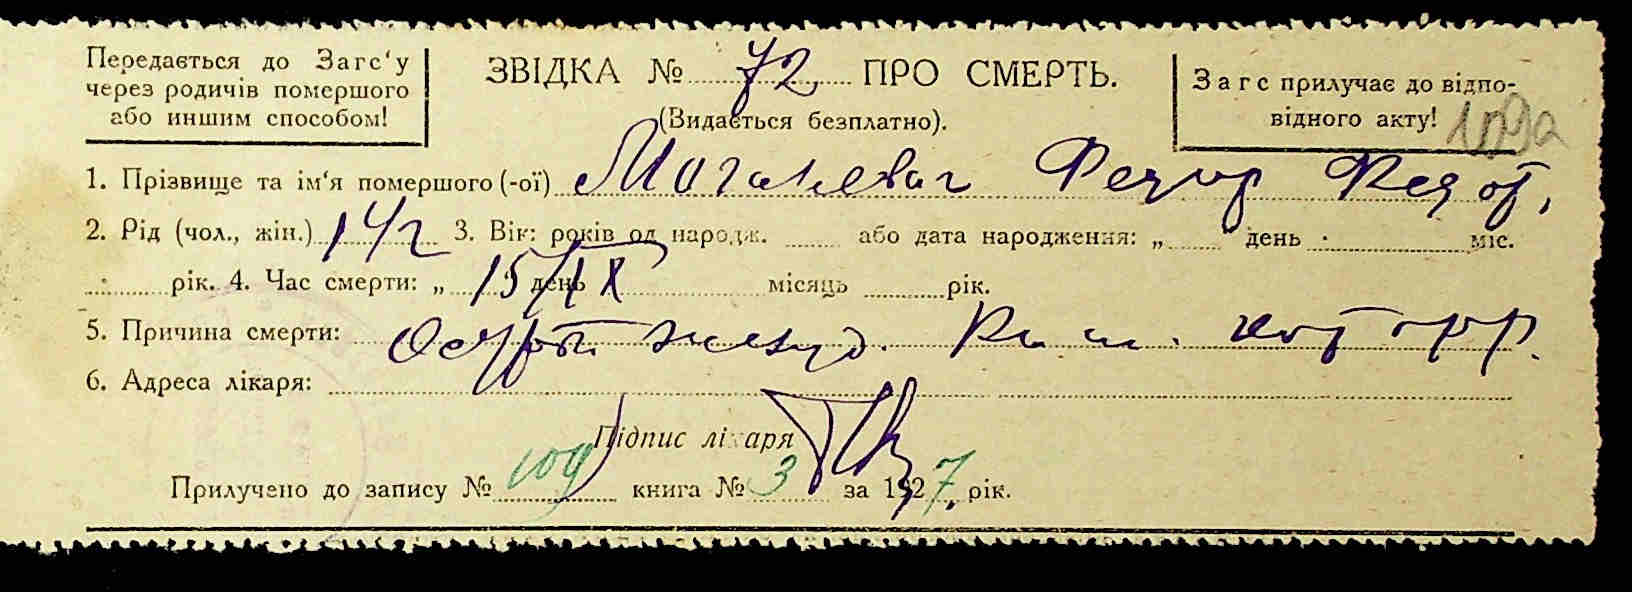 Передається до Загс‘у
через родичів помершого
або иншим способом!
ЗВІДКА № 72 ПРО СМЕРТЬ.
(Видається безплатно).
Загс прилучає до відпо-
відного акту! 109а
1. Прізвище та ім‘я помершого (-ої) Федор Федот,
2. Рід (чол., жін.) 3. Вік: років од народж. або дата народження: „ “ день міс.
рік. 4. Час смерти: „ 15/IX день місяць рік.
5. Причина смерти:
6. Адреса лікаря:
Підпис лікаря
Прилучено до запису № 109 книга № 3 за 1927 рік.